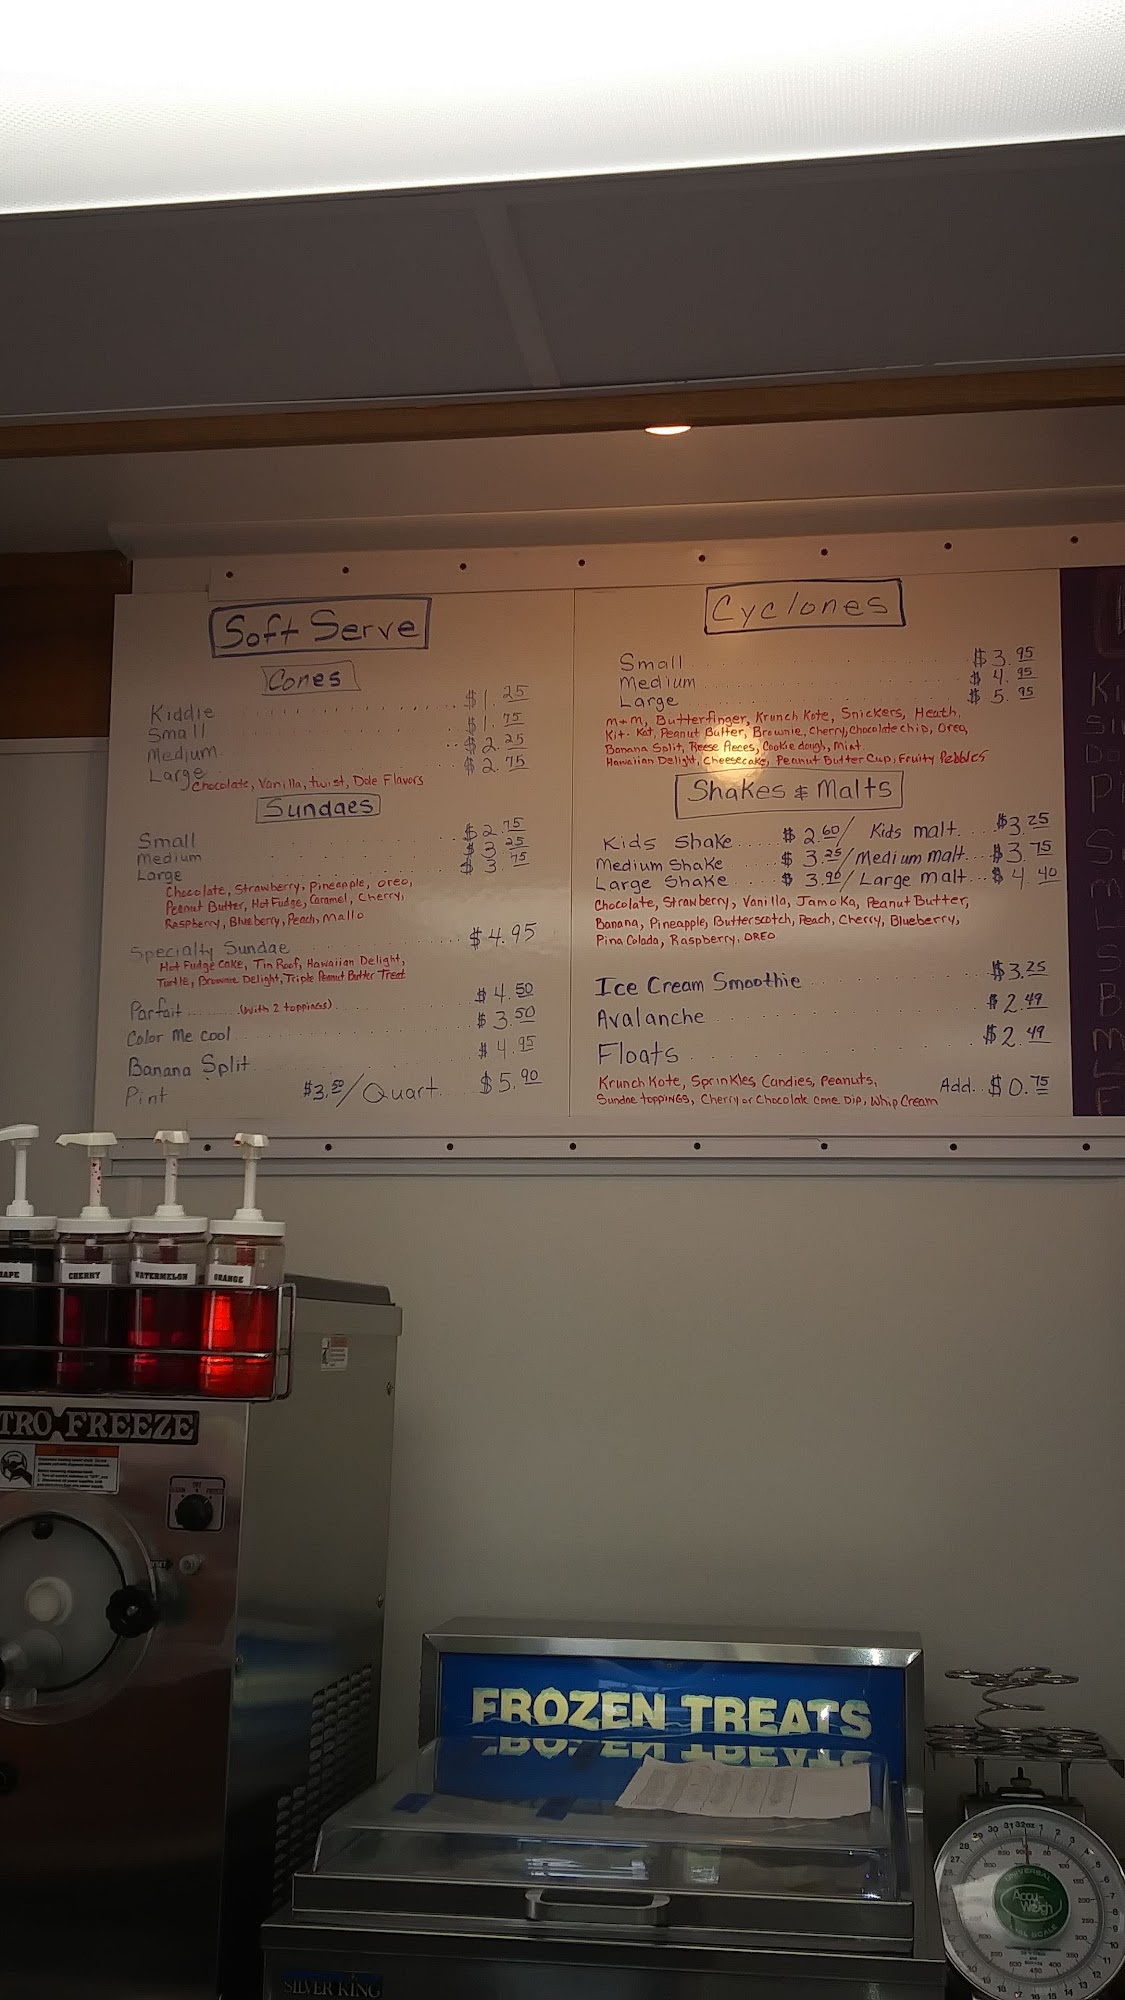 Soft Serve
Cones
Kiddie $1.25
Small $1.75
Medium $2.25
Large $2.75
Chocolate, Vanilla, Twist, Dole Flavors
Sundaes
Small $2.75
Medium $3.25
Large $3.75
Chocolate, Strawberry, Pineapple, Oreo,
Peanut Butter, Hot Fudge, Caramel, Cherry,
Raspberry, Blueberry, Peach, Mallo
Specialty Sundae $4.95
Hot Fudge Cake, Tin Roof, Hawaiian Delight,
Turtle, Brownie Delight, Triple Peanut Butter Treat
Parfait (with 2 toppings) $4.50
Color Me Cool $3.50
Banana Split $4.95
Pint $3.50/Quart $5.90
Cyclones
Small $3.95
Medium $4.95
Large $5.95
m+m, Butterfinger, Krunch Kote, Snickers, Heath,
Kit-Kat, Peanut Butter, Brownie, Cherry, Chocolate chip, Oreo,
Banana Split, Reese Pieces, Cookie dough, Mint,
Hawaiian Delight, Cheesecake, Peanut Butter Cup, Fruity Pebbles
Shakes & Malts
Kids Shake $2.60/Kids malt $3.25
Medium Shake $3.25/Medium malt $3.75
Large Shake $3.90/Large malt $4.40
Chocolate, Strawberry, Vanilla, Jamoka, Peanut Butter,
Banana, Pineapple, Butterscotch, Peach, Cherry, Blueberry,
Pina Colada, Raspberry, OREO
Ice Cream Smoothie $3.25
Avalanche $2.49
Floats $2.49
Krunch Kote, Sprinkles, Candies, Peanuts,
Sundae toppings, Cherry or Chocolate cone Dip, Whip Cream
Add $0.75
CHERRY
WATERMELON
ORANGE
TRO FREEZE
FROZEN TREATS
SILVER KING
UNIVERSAL
Accu-Weigh